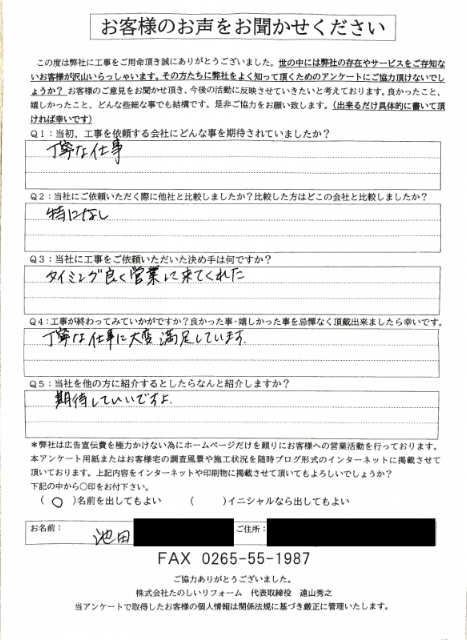 お客様のお声をお聞かせください
この度は弊社に工事をご用命頂き誠にありがとうございました。世の中には弊社の存在やサービスをご存知な
いお客様が沢山いらっしゃいます。その方たちに弊社をよく知って頂くためのアンケートにご協力頂けないでし
ょうか？ お客様のご意見をお聞かせ頂き、今後の活動に反映させていきたいと考えております。良かったこと、
嬉しかったこと、どんな些細な事でも結構です。是非ご協力をお願い致します。（出来るだけ具体的に書いて頂
ければ幸いです）
Q1：当初、工事を依頼する会社にどんな事を期待されていましたか？
丁寧な仕事
Q2：当社にご依頼いただく際に他社と比較しましたか？比較した方はどこの会社と比較しましたか？
特になし
Q3：当社に工事をご依頼いただいた決め手は何ですか？
タイミング良く営業に来てくれた
Q4：工事が終わってみていかがですか？良かった事・嬉しかった事を忌憚なく頂戴出来ましたら幸いです。
丁寧な仕事に大変満足しています。
Q5：当社を他の方に紹介するとしたらなんと紹介しますか？
期待していいですよ。
＊弊社は広告宣伝費を極力かけない為にホームページだけを頼りにお客様への営業活動を行っております。
本アンケート用紙またはお客様宅の調査風景や施工状況を随時ブログ形式のインターネットに掲載させて
頂いております。上記内容をインターネットや印刷物に掲載させて頂いてもよろしいでしょうか？
下記の中から〇印をお付け下さい。
（ 〇 ）名前を出してもよい （ ）イニシャルなら出してもよい
お名前： 池田 ご住所：
FAX 0265-55-1987
ご協力ありがとうございました。
株式会社たのしいリフォーム 代表取締役 遠山秀之
当アンケートで取得したお客様の個人情報は関係法規に基づき厳正に管理いたします。